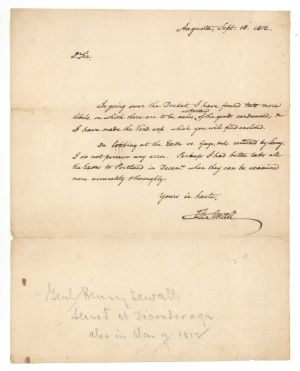 Augusta, Sept. 18. 1812.
D. Sir,
In going over the Docket I have found two more
libels, on which there are to be sales of the goods condemned, &
I have made the Vend. exp. which you will find enclosed.
On looking at the Exon vs. Gage, returned by Levy,
I do not perceive any error. Perhaps I had better take all
the Exons to Portland in Decemr. when they can be examined
more accurately & thoroughly.
Yours in haste,
H. Sewall
Genl Henry Sewall
Served at Ticonderoga
also in War of 1812